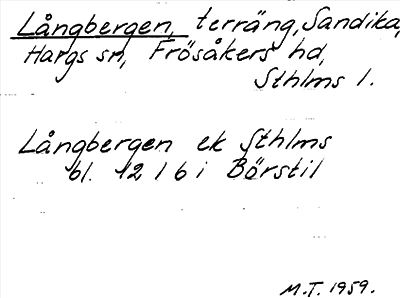 Långbergen, terräng, Sandika,
Hargs sn, Frösåkers hd,
Sthlms l.
Långbergen ek Sthlms
bl. 12 / 6 i Börstil
M.T. 1959.